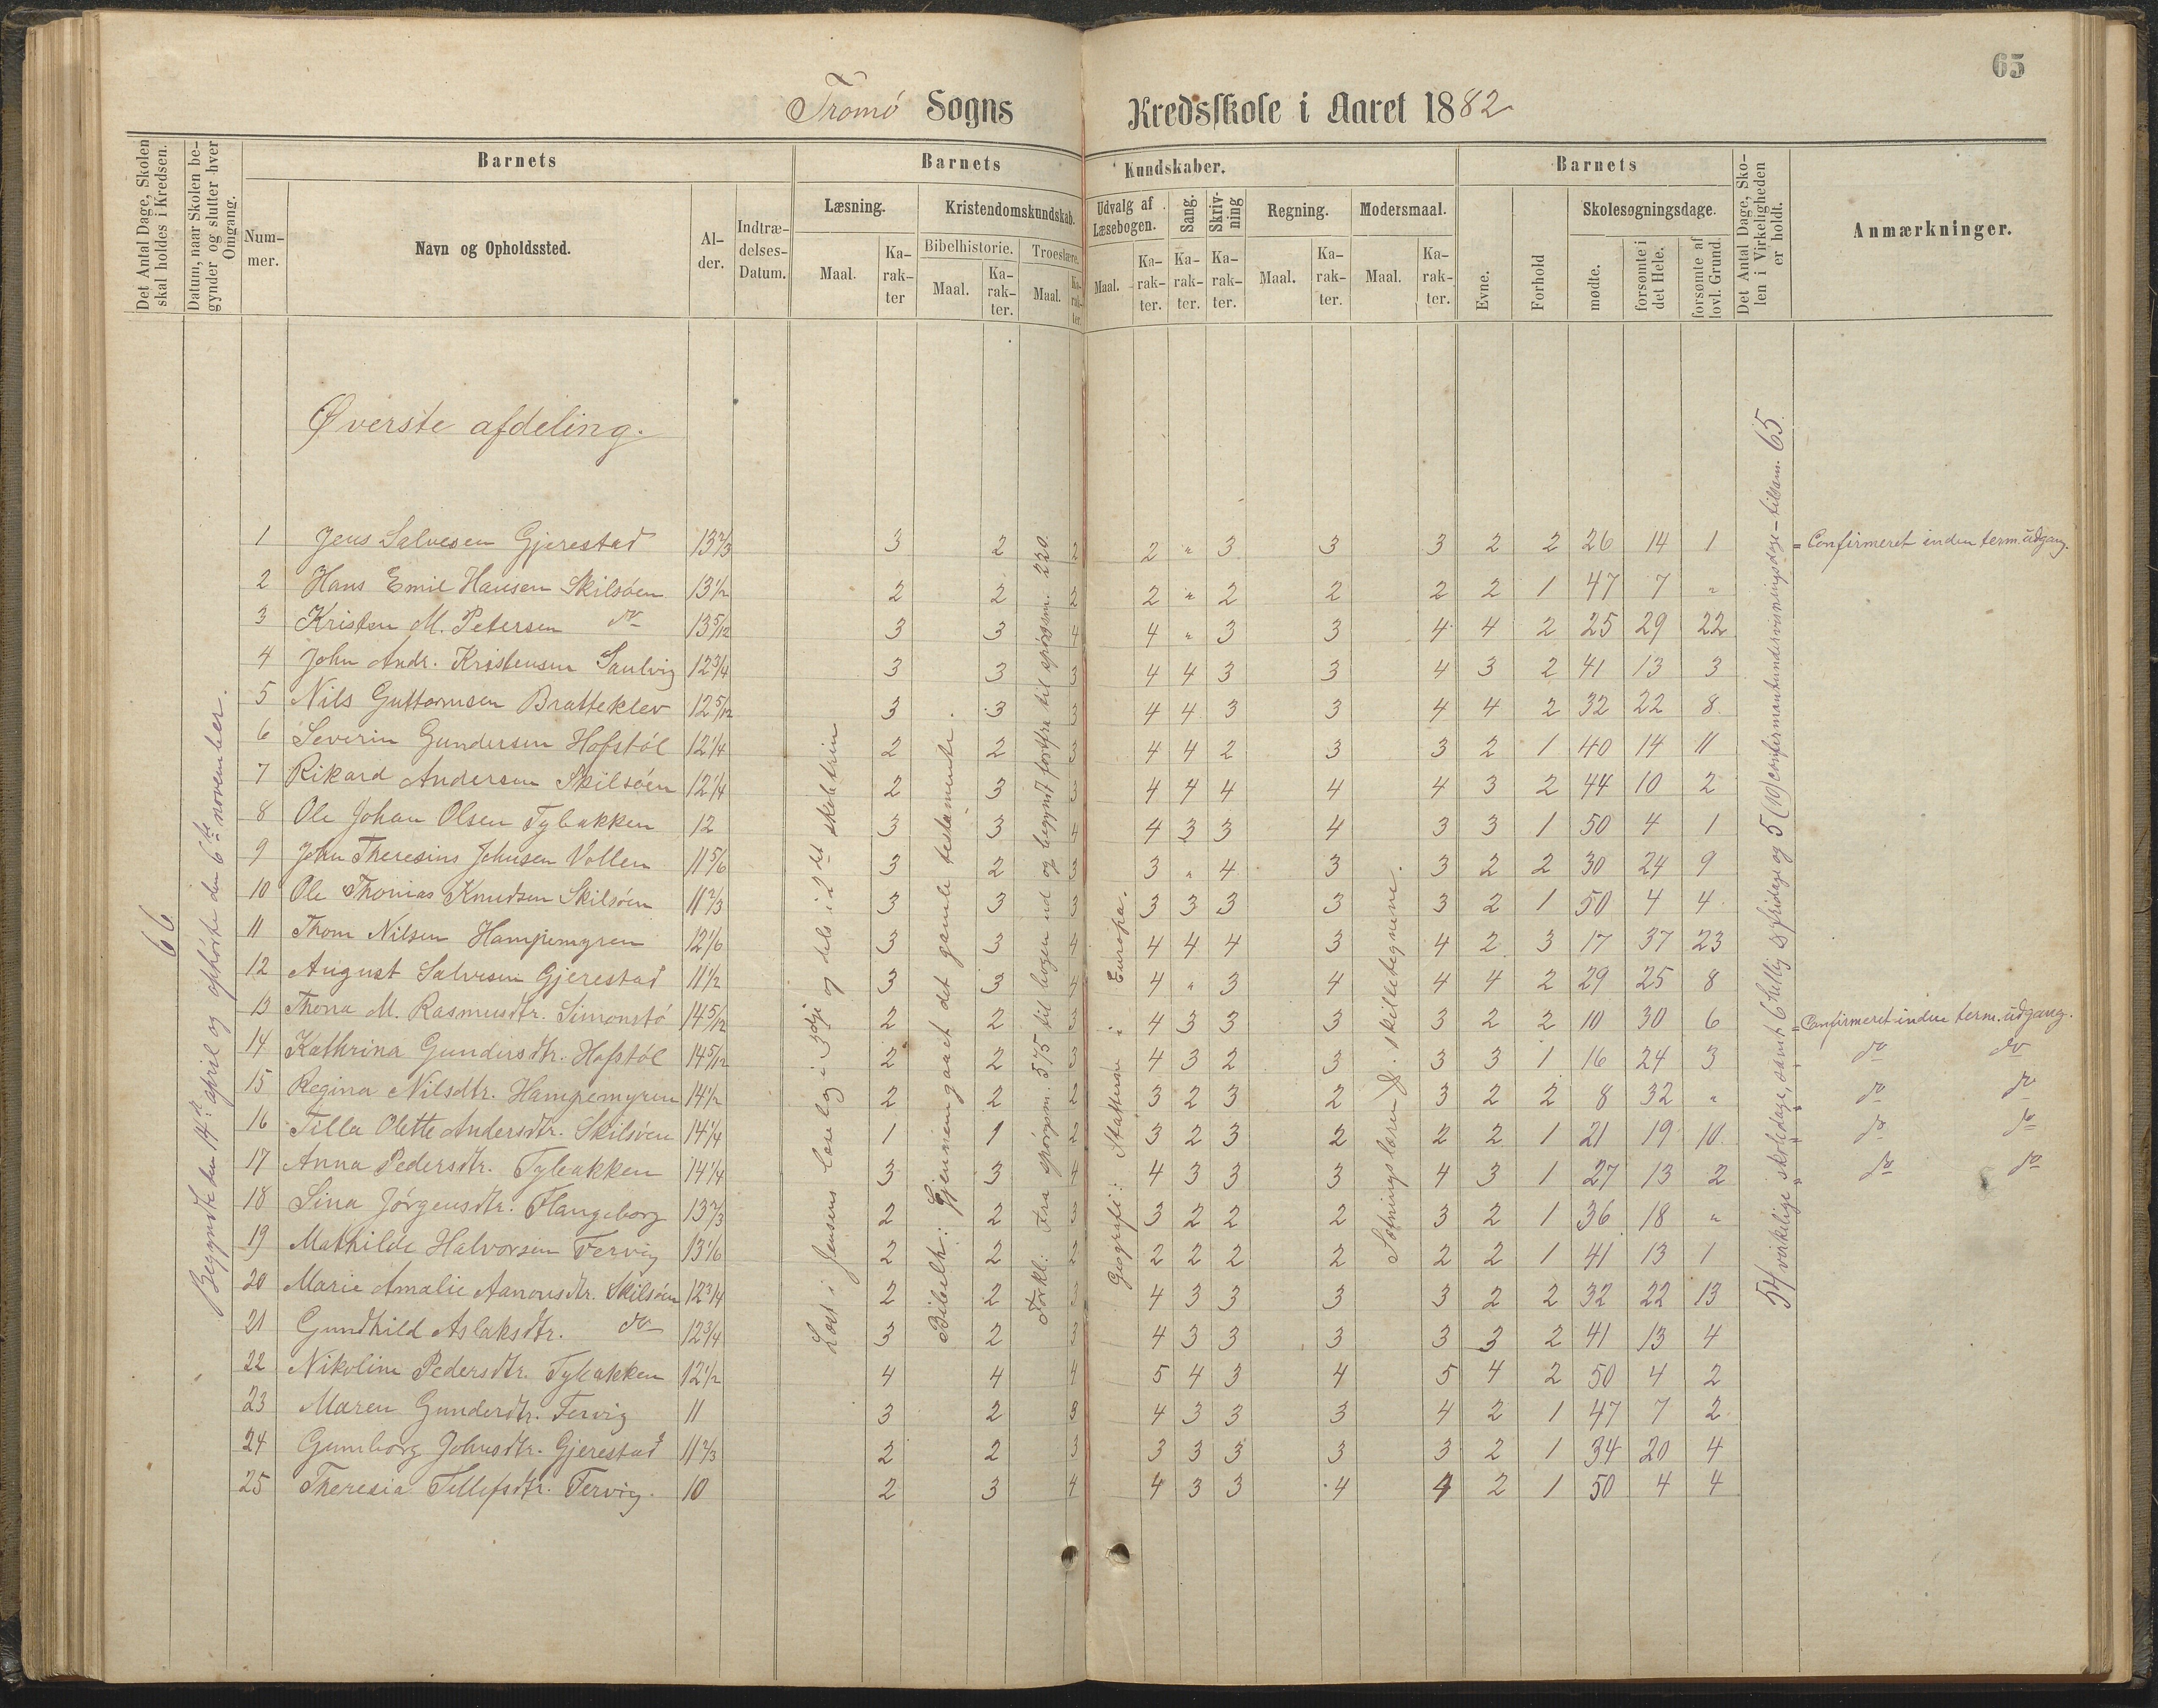 65
Tromö Sogns Kredsskole i Aaret 1882
Det Antal Dage, Skolen skal holdes i Kredsen.
Datum, naar Skolen begynder og slutter hver Omgang.
Barnets
Nummer.
Navn og Opholdssted.
Alder.
Indtrædelses-Datum.
Barnets Kundskaber.
Læsning.
Maal.
Karakter
Kristendomskundskab.
Bibelhistorie.
Maal.
Karakter.
Troeslære.
Maal.
Karakter.
Udvalg af Læsebogen.
Maal.
Karakter.
Sang.
Karakter.
Skrivning
Karakter.
Regning.
Maal.
Karakter.
Modersmaal.
Maal.
Karakter.
Barnets
Evne.
Forhold
Skolesøgningsdage.
mødte.
forsømte i det Hele.
forsømte af lovl. Grund.
Det Antal Dage, Skolen i Virkeligheden er holdt.
Anmærkninger.
Øverste afdeling.
66
Begyndte den 14de april og ophörte den 6te november.
Læst i Jensens læsebog i 3dje og dels i 2det skoletrin
Bibelh.: Gjennemgaaet det gamle testamente.
Forkl.: Fra spörgsm. 575 til bogen ud og begyndt forfra til spörgsm. 220.
Geografi: Statterne i Europa.
Sætningslæren & skilletegnene.
54 virkelige skoledage, samt 6 hellig & fridage og 5 (10) confirmantundervisningsdage - tilsam. 65.
1 Jens Salvesen Gjerestad 13 2/3 3 2 2 2 " 3 3 3 2 2 26 14 1 = Confirmeret inden term. udgang.
2 Hans Emil Hansen Skilsöen 13 1/2 2 2 2 2 " 2 2 2 2 1 47 7 "
3 Kristen M. Petersen do 13 5/12 3 3 4 4 " 3 3 4 4 2 25 29 22
4 John Andr. Kristensen Sandvig 12 3/4 3 3 3 4 4 3 3 4 3 2 41 13 3
5 Nils Guttormsen Bratteklev 12 5/12 3 3 3 4 4 3 3 4 4 2 32 22 8
6 Severin Gundersen Hofstöl 12 1/4 2 2 3 4 4 2 3 3 2 1 40 14 11
7 Rikard Andersen Skilsöen 12 1/4 2 3 3 4 4 4 4 4 3 2 44 10 2
8 Ole Johan Olsen Tybakken 12 3 3 4 4 3 3 4 3 3 1 50 4 1
9 John Theresius Johnsen Vollen 11 5/6 3 2 3 3 " 4 3 3 2 2 30 24 9
10 Ole Thomas Knudsen Skilsöen 11 2/3 3 3 3 3 3 3 3 3 2 1 50 4 4
11 Thom Nilsen Hampemyren 12 1/6 3 3 4 4 4 4 3 4 2 3 17 37 23
12 August Salvesen Gjerestad 11 1/2 3 3 4 4 " 3 4 4 4 2 29 25 8
13 Thona M. Rasmusdtr. Simonstö 14 5/12 2 2 3 4 3 3 3 3 2 2 10 30 6 = Confirmeret inden term. udgang.
14 Kathrina Gundersdtr. Hofstöl 14 5/12 2 2 3 4 3 2 3 3 3 1 16 24 3 do do
15 Regina Nilsdtr. Hampemyren 14 1/2 2 2 2 3 2 3 2 3 2 2 8 32 " do do
16 Tilla Olette Andersdtr. Skilsöen 14 1/4 1 1 2 3 2 3 2 2 2 1 21 19 10 do do
17 Anna Pedersdtr. Tybakken 14 1/4 3 3 4 4 3 3 3 4 3 1 27 13 2 do do
18 Sina Jörgensdtr. Flangeborg 13 2/3 2 2 3 3 2 2 2 3 2 1 36 18 "
19 Mathilde Halvorsen Tervig 13 1/6 2 2 2 2 2 2 2 2 2 1 41 13 1
20 Marie Amalie Aanonsdtr. Skilsöen 12 3/4 2 2 3 4 3 3 3 3 2 2 32 22 13
21 Gundhild Aslaksdtr. do 12 3/4 3 2 3 4 3 3 3 3 3 2 41 13 4
22 Nikoline Pedersdtr. Tybakken 12 1/2 4 4 4 5 4 3 4 5 4 2 50 4 2
23 Maren Gunderdtr. Tervig 11 3 2 3 4 3 3 3 4 2 1 47 7 2
24 Gunborg Johnsdtr. Gjerestad 11 2/3 2 2 3 3 3 3 3 3 2 1 34 20 4
25 Theresia Tellefsdtr. Tervig. 10 2 3 4 4 3 3 4 4 2 1 50 4 4